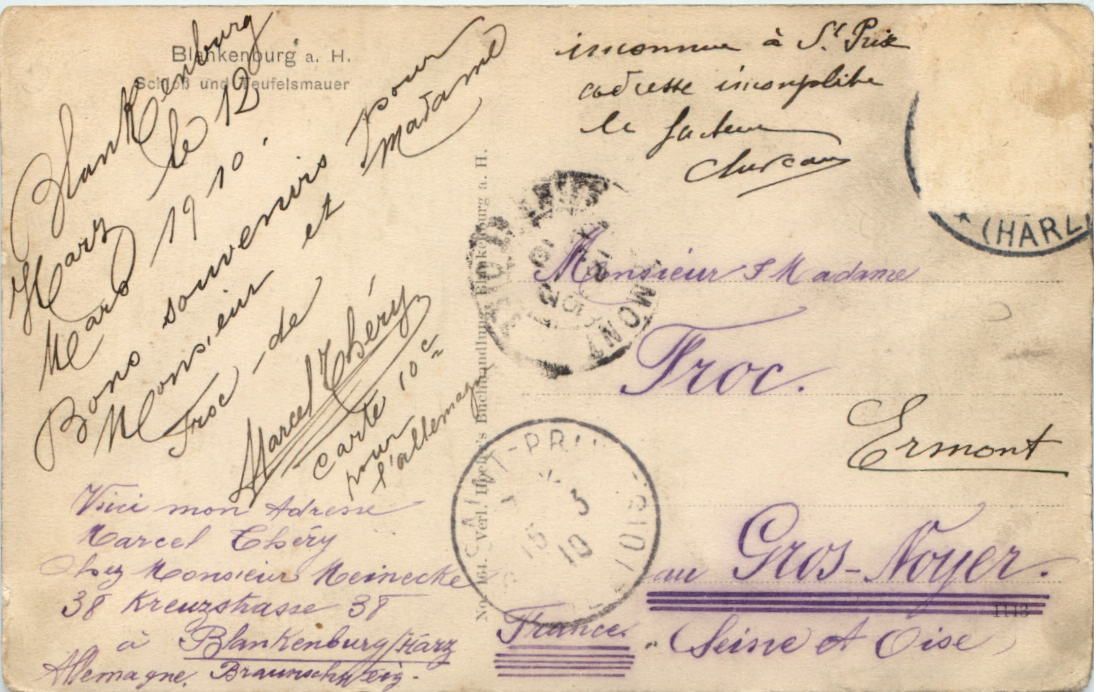 Blankenburg a. H.
Schloß und Teufelsmauer
Blankenburg
Harz le 12
Mars 1910.
Bons souvenirs pour
Monsieur et Madame
Froc de
Marcel Théry
carte 10c
pour
l'allemagne
Voici mon Adresse
Marcel Théry
Chez Monsieur Meinecke
38 Kreuzstrasse 38
à Blankenburg/Harz
Allemagne. Braunschweig.
Buchhandlung, Blankenburg a. H.
inconnue à St Prix
adresse incomplète
le facteur
* (HARZ
ERMONT
SAINT-PRIX
15 3
10
Monsieur & Madame
Froc.
Ermont
au Gros-Noyer.
France. Seine et Oise
1113